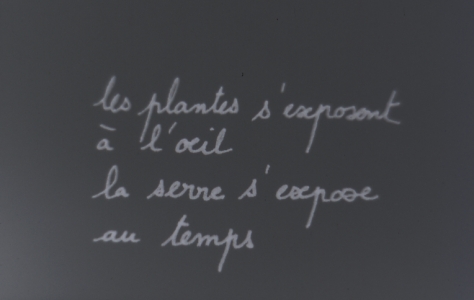 les plantes s'exposent
à l'œil
la serre s'expose
au temps